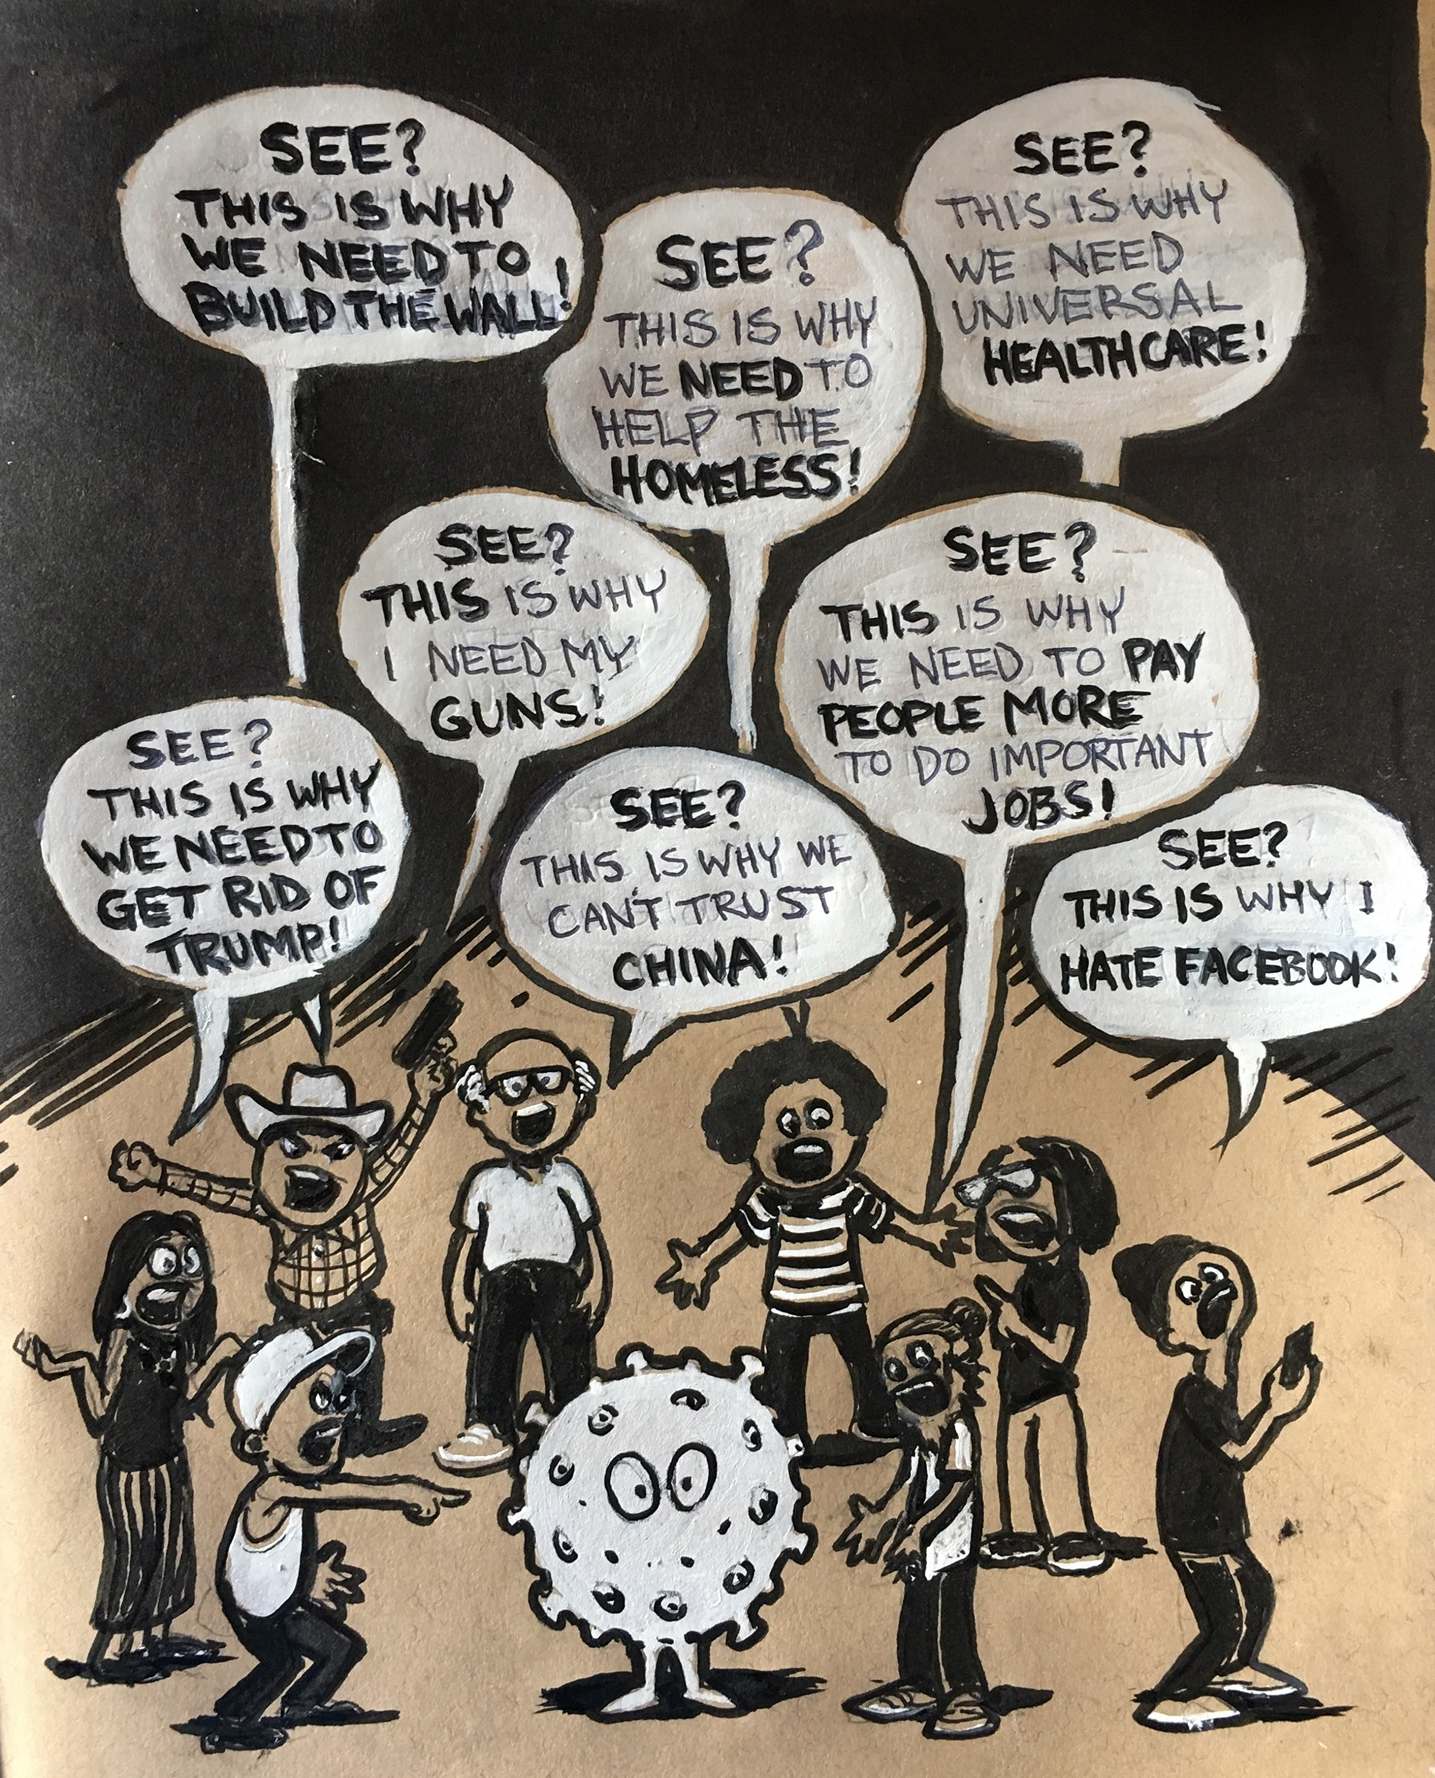 SEE?
THIS IS WHY
WE NEED TO
BUILD THE WALL!
SEE?
THIS IS WHY
WE NEED TO
HELP THE
HOMELESS!
SEE?
THIS IS WHY
WE NEED
UNIVERSAL
HEALTHCARE!
SEE?
THIS IS WHY
I NEED MY
GUNS!
SEE?
THIS IS WHY
WE NEED TO PAY
PEOPLE MORE
TO DO IMPORTANT
JOBS!
SEE?
THIS IS WHY
WE NEED TO
GET RID OF
TRUMP!
SEE?
THIS IS WHY WE
CAN'T TRUST
CHINA!
SEE?
THIS IS WHY I
HATE FACEBOOK!